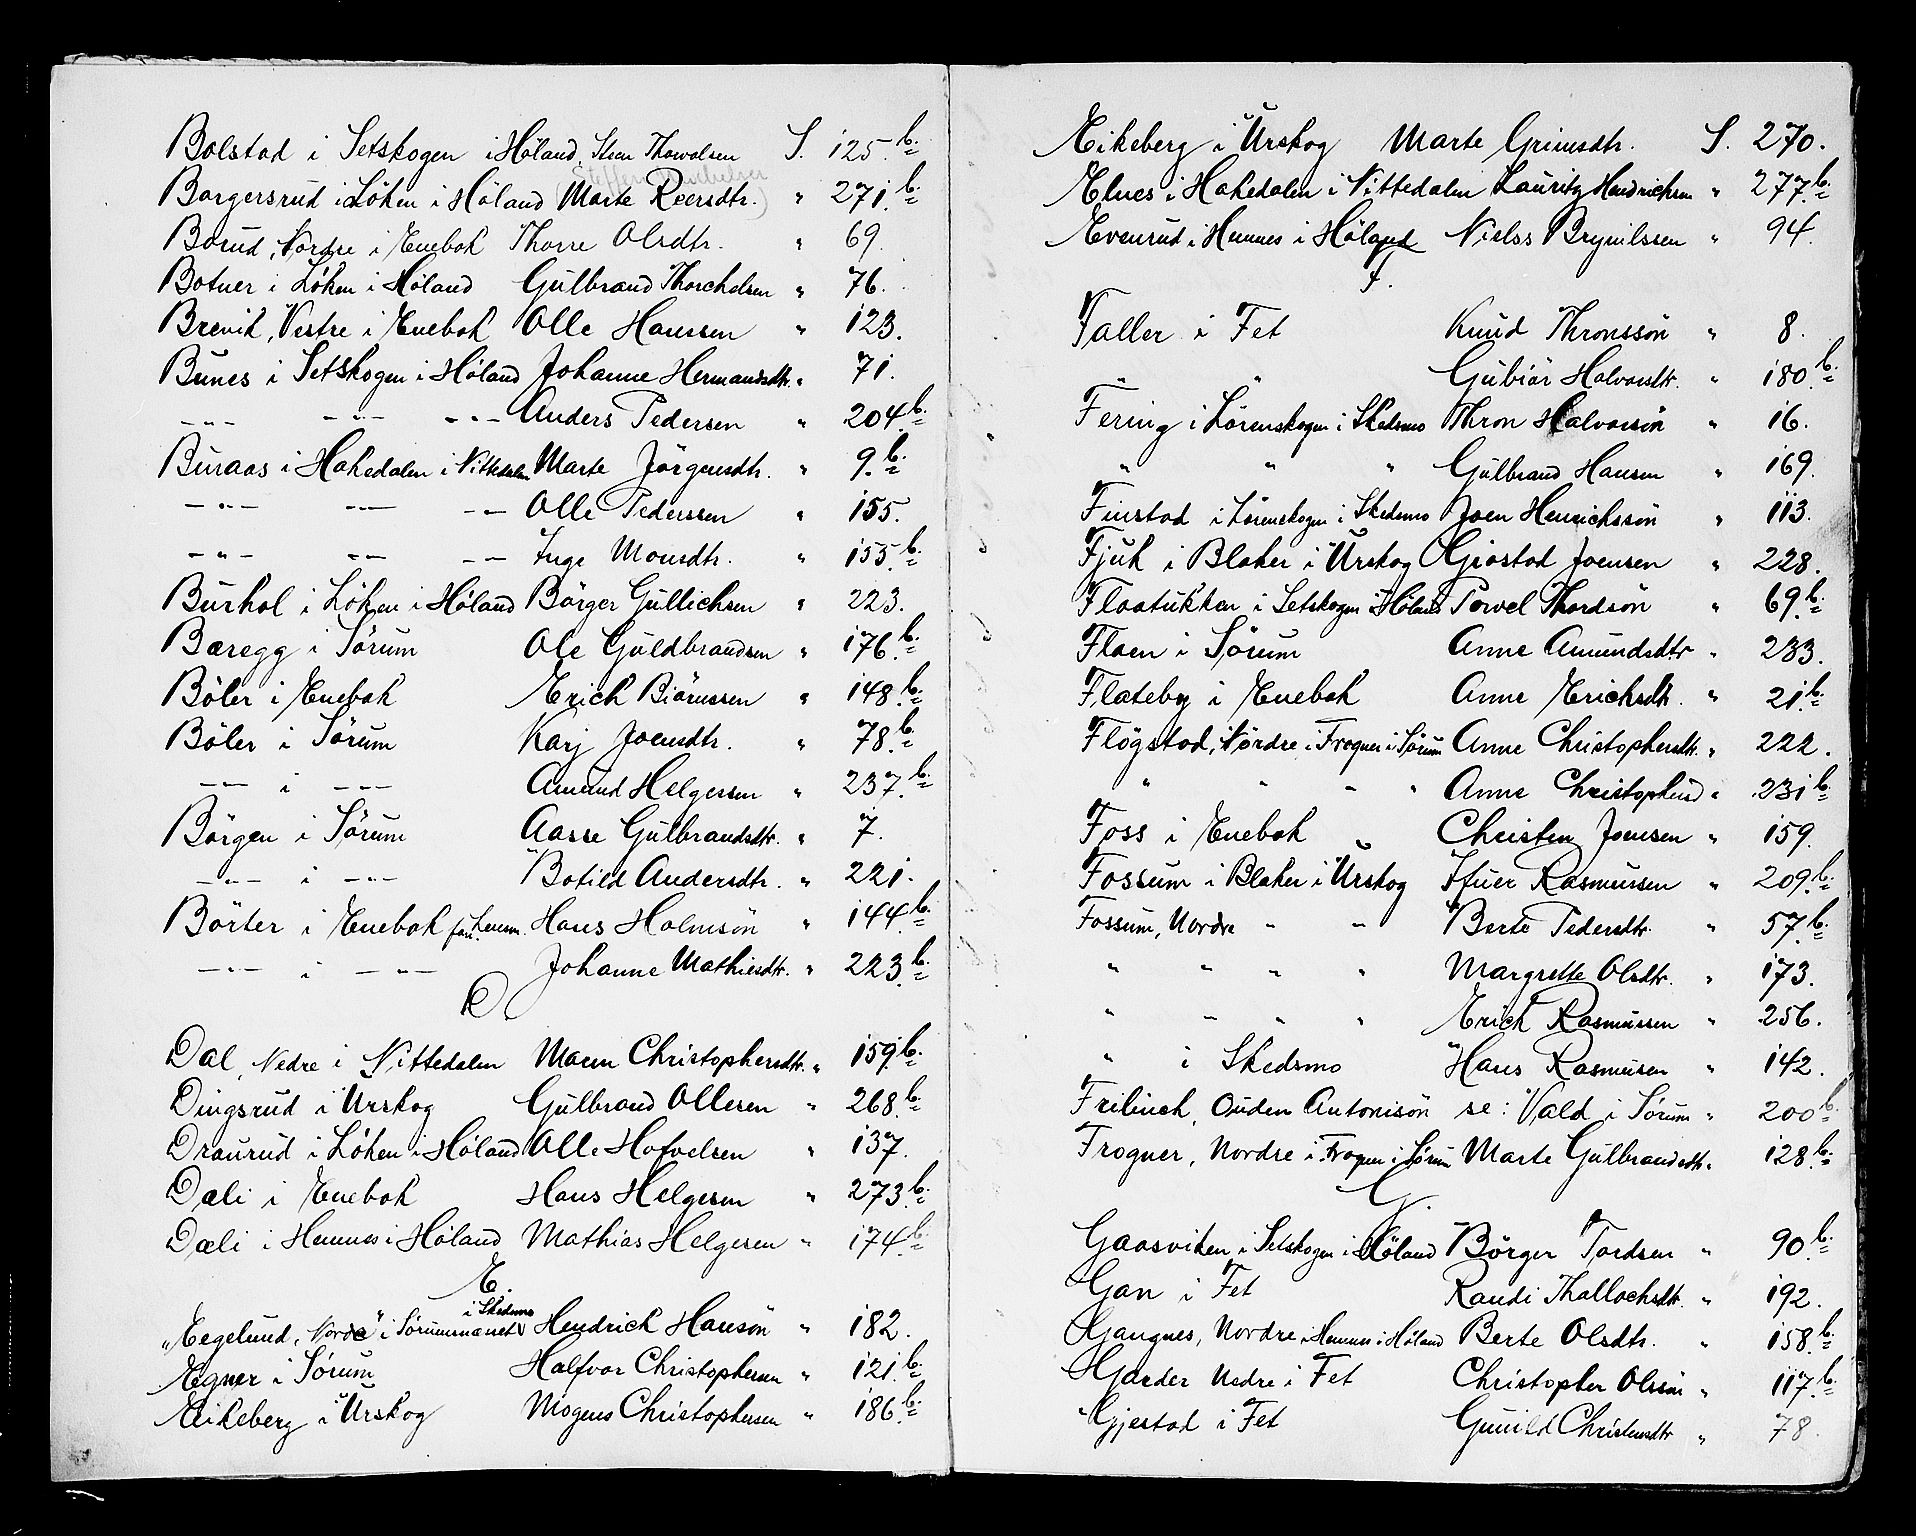 Bolstad i Setskogen i Höland, Sten Thorvalsen S. 125.b.
(Steffen
Borgersrud i Löken i Höland Marte Reersdtr.) " 271.b.
Borud, Nordre i Enebak Thorre Olsdtr. " 69.
Botner i Löken i Höland Gulbrand Thorchelsen " 76.
Brevik, Vestre i Enebak Olle Hanssen " 123.
Bunes i Setskogen i Höland Johanne Hermandsdtr. " 71.
-"- -"- -"- Anders Pedersen " 204.b.
Buraas i Hakedalen i Nittedalen Marte Jörgensdtr. " 9.b.
-"- -"- -"- Olle Pederssen " 155.
-"- -"- -"- Inge Monsdtr. " 155.b.
Burhol i Löken i Höland Börger Gullichsen " 223.
Bæregg i Sörum Ole Guldbrandsen " 176.b.
Böler i Enebak Erich Biörnssen " 148.b.
Böler i Sörum Karj Joensdtr. " 78.b.
-"- i -"- Amund Helgersen " 237.b.
Börgen i Sörum Aasse Gulbrandsdtr. " 7.
-"- i -"- Botild Andersdtr. " 221.
Börter i Enebak Hans Holmsön " 144.b.
-"- i -"- Johanne Mathiesdtr. " 223.b.
D.
Dal, Nedre i Nittedalen Maren Christophersdtr. " 159.b.
Dingsrud i Urskog Gulbrand Ollesen " 268.b.
Draurud i Löken i Höland Olle Hofvelsen " 137.
Dæli i Enebak Hans Helgesen " 273.b.
Dæli i Hemnes i Höland Mathias Helgesen " 174.b.
E.
i Skedsmo
"Egelund, Nordre" i Sörumsmarket Hendrich Hansön " 182.
Egner i Sörum Halfvor Christophersen " 121.b.
Eikeberg i Urskog Mogens Christophersen " 186.b.
Eikeberg i Urskog Marte Grimsdtr. S. 270.
Elnes i Hakedalen i Nittedalen Lauritz Hendrichsen " 277.b.
Evenrud i Hemnes i Höland Nielss Brynilssen " 94.
F.
Faller i Fet Knud Thronssön " 8.
" " Gubiör Halvorsdtr. " 180.b.
Fering i Lörenskogen i Skedsmo Thron Halvorsön " 16.
" " " Gulbrand Hansen " 169.
Finstad i Lörenskogen i Skedsmo Joen Henrichssön " 113.
Fjuk i Blaker i Urskog Giostad Joensen " 228.
Flaatukken i Setskogen i Höland Povel Thordsön " 69.b.
Flaen i Sörum Anne Amundsdtr " 233.
Flateby i Enebak Anne Erichsdtr. " 21.b.
Flögstad, Nordre i Frogner i Sörum Anne Christophersdtr. " 222.
" " " " Anne Christophersd " 231.b.
Foss i Enebak Christen Joensen " 159.
Fossum i Blaker i Urskog Ifuer Rasmussen " 209.b.
Fossum, Nordre " " Berte Pedersdtr. " 57.b.
" " " " Margrette Olsdtr. " 173.
" " " " Erich Rasmussen " 256.
" i Skedsmo Hans Rasmusen " 142.
Frilinch, Ouden Antonisön se: Vald i Sörum " 200.b.
Frogner, Nordre i Frogner i Sörum Marte Gulbrandsdtr. " 128.b.
G.
Gaasviken i Setskogen i Höland Börger Tordsen " 90.b.
Gan i Fet Randi Thollachsdtr. " 192.
Gangnes, Nordre i Hemnes i Höland Berte Olsdtr. " 158.b.
Garder Nedre i Fet Christopher Olssön " 117.b.
Gjestad i Fet Gunild Christensdtr " 78.